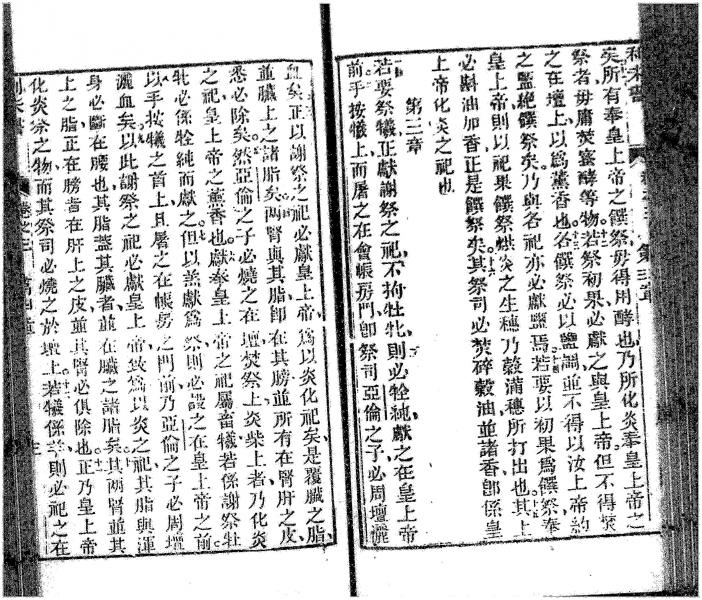 利未書
第三章
矣所有奉皇上帝之饌祭毋得用酵也乃所化炎奉皇上帝之
祭者毋庸焚蜜酵等物若祭初果必獻之與皇上帝但不得焚
之在壇上以爲薰香也各饌祭必以鹽調並不得以汝上帝約
之鹽絕饌祭矣乃與各祀亦必獻鹽焉若要以初果爲饌祭奉
皇上帝則以祀果饌祭烘炎之生穗乃穀滿穗所打出也其上
必斟油加香正是饌祭矣其祭司必焚碎穀油並諸香卽係皇
上帝化炎之祀也
第三章
若要祭犧正獻謝祭之祀不拘牡牝則必牷純獻之在皇上帝
前手按犧上而屠之在會帳房門卽祭司亞倫之子必周壇灑
血矣正以謝祭之祀必獻皇上帝爲以炎化祀矣是覆臟之脂
並臟上之諸脂矣兩腎與其脂卽在其膀並所有在腎肝之皮
悉必除矣然亞倫之子必燒之在壇焚祭上炎柴上者乃化炎
之祀皇上帝之薰香也獻奉皇上帝之祀屬畜犧若係謝祭牡
牝必係牷純而獻之但以羔獻爲祭則必設之在皇上帝之前
以手按犧之首上且屠之在帳房之門前乃亞倫之子必周壇
灑血矣以此謝祭之祀必獻皇上帝致爲以炎之祀其脂與渾
身必斷在腰也其脂蓋其臟者並在臟之諸脂矣其兩腎並其
上之脂正在膀者在肝上之皮並其腎必俱除也正乃皇上帝
化炎祭之物而其祭司必燒之於壇上若犧係羊則必祀之在